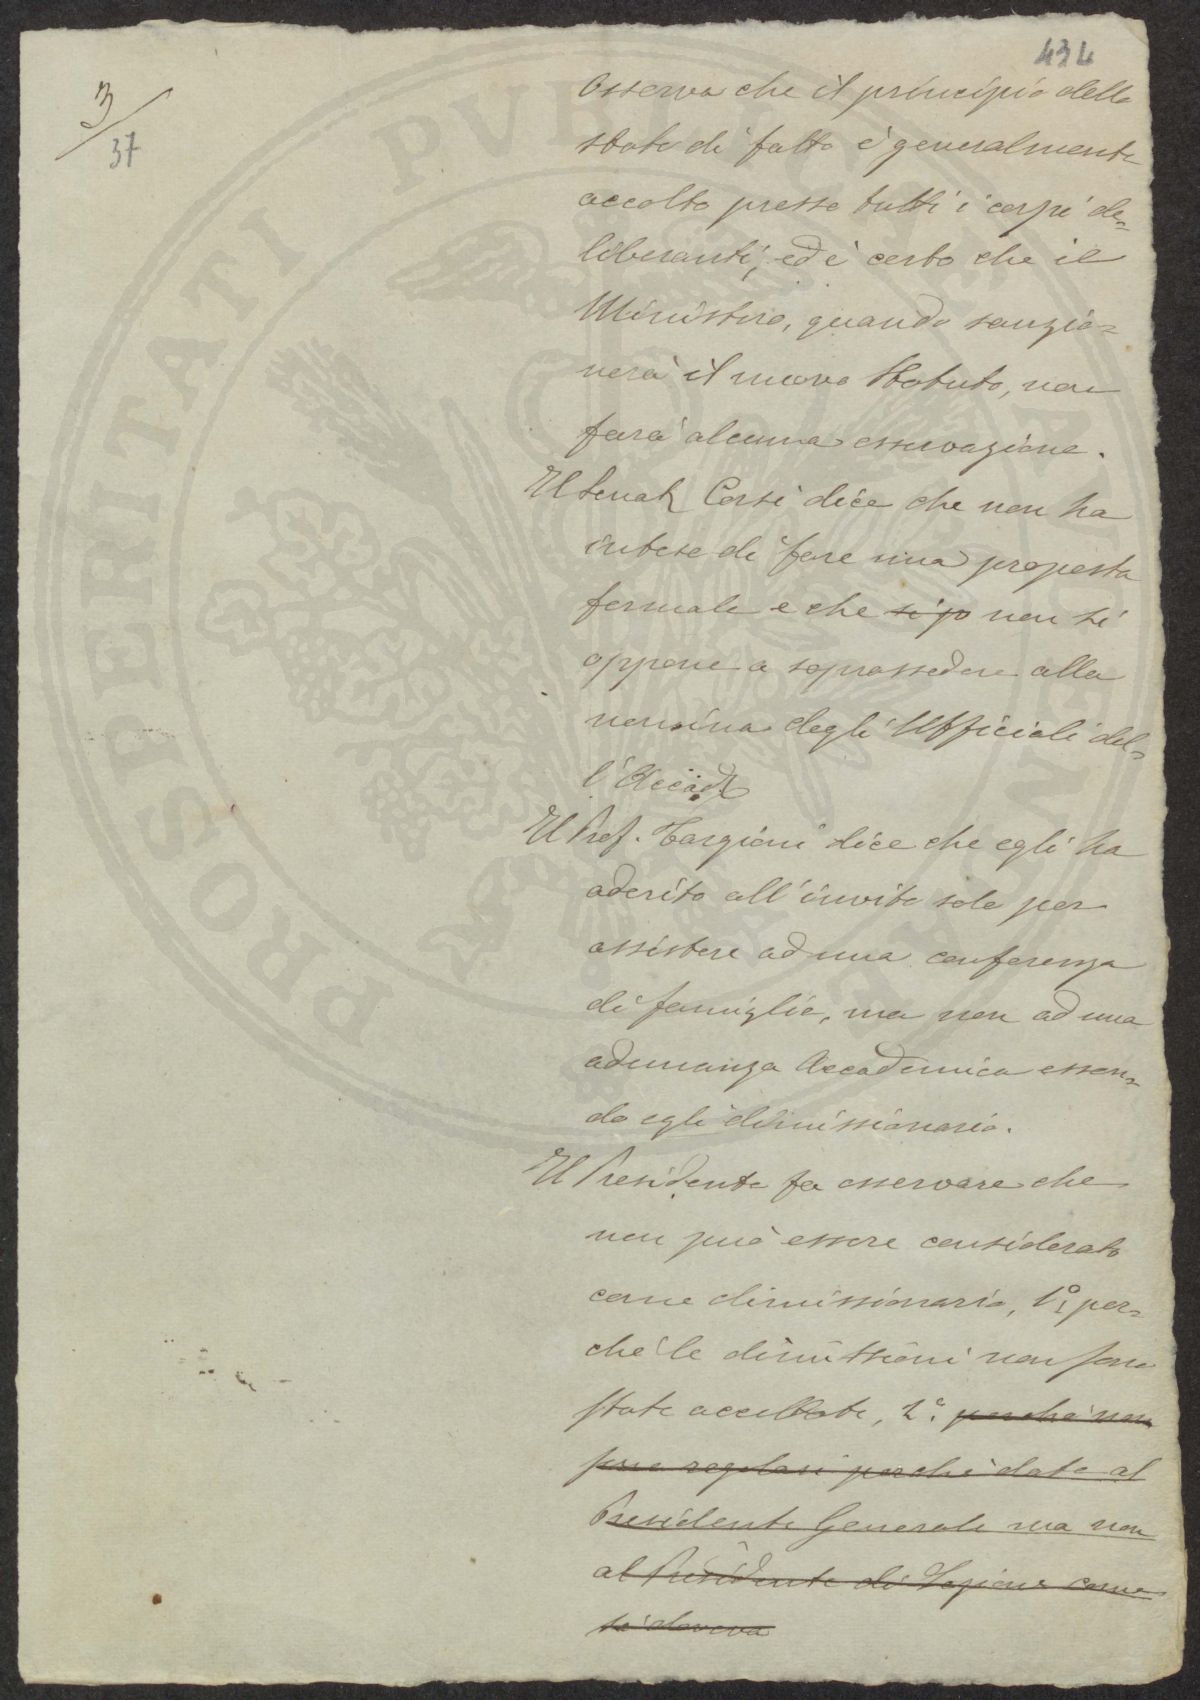 434
3/37
osserva che il principio dello
stato di fatto è generalmente
accolto presso tutti i corpi de=
liberanti, ed è certo che il
Ministero, quando sanzio=
nerà il nuovo Statuto, non
farà alcuna osservazione.
Il Senat. Corsi dice che non ha
inteso di fare una proposta
formale e che si po non si
oppone a soprassedere alla
nomina degli Ufficiali del=
l'Accad.
Il Prof. Targioni dice che egli ha
aderito all'invito solo per
assistere ad una conferenza
di famiglia, ma non ad una
adunanza Accademica essen=
do egli dimissionario.
Il Presidente fa osservare che
non può essere considerato
come dimissionario, 1º per=
chè le dimissioni non sono
state accettate, 2º. perchè non
sono regolari perchè date al
Presidente Generale ma non
al Presidente di Sezione come
si doveva
PROSPERITATI PVBLICAE